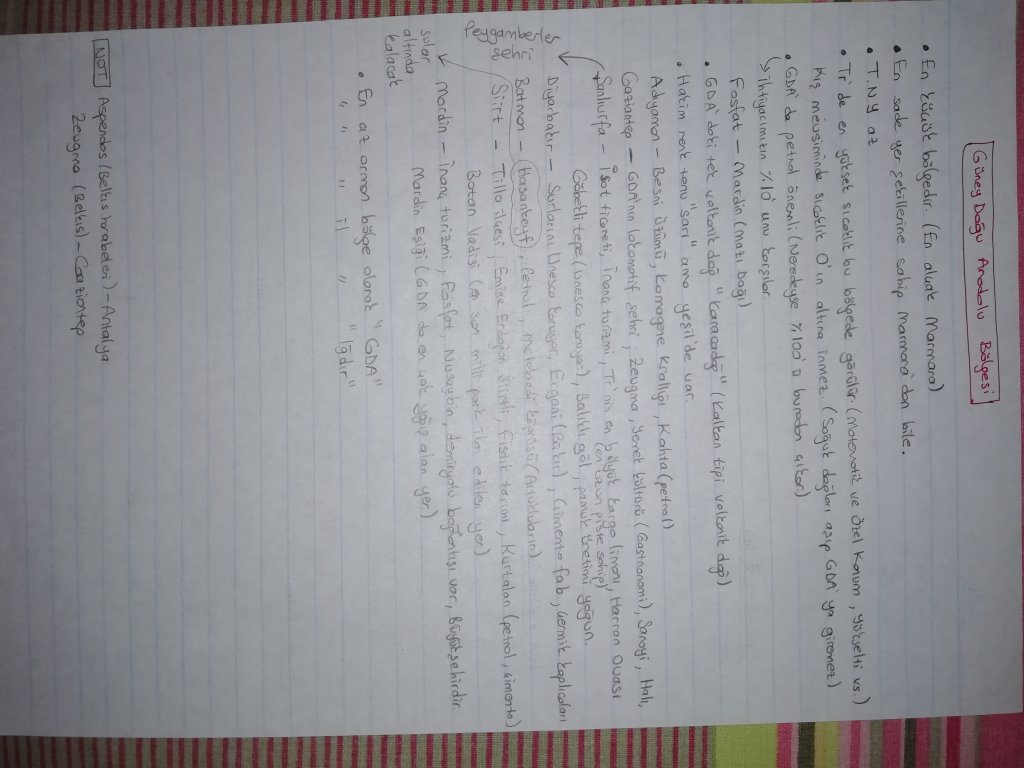 Güney Doğu Anadolu Bölgesi
• En küçük bölgedir. (En alçak Marmara)
• En sade yer şekillerine sahip Marmara'dan bile.
• T.N.Y az
• Tr'de en yüksek sıcaklık bu bölgede görülür (Matematik ve Özel Konum, yükselti vs.)
Kış mevsiminde sıcaklık 0'ın altına inmez. (Soğuk dağları aşıp GDA'ya giremez)
• GDA'da petrol önemli (Neredeyse %100'ü buradan çıkar)
↳ ihtiyacımızın %10'unu karşılar.
Fosfat – Mardin (Mazı Dağı)
• GDA'daki tek volkanik dağ "Karacadağ" (Kalkan tipi volkanik dağ)
• Hakim renk tonu "sarı" ama yeşil'de var.
Adıyaman – Besni Üzümü, Komagene Krallığı, Kahta (petrol)
Gaziantep – GDA'nın lokomotif şehri, Zeugma, yemek kültürü (Gastronomi), Sanayi, Halı,
Şanlıurfa – İsot ticareti, İnanç turizmi, Tr'nin en büyük kargo limanı, Harran Ovası
(en uzun piste sahip)
peygamberler şehri
Göbeklitepe (Unesco koruyor), Balıklı göl, pamuk üretimi yoğun.
Diyarbakır – Surlarını Unesco koruyor, Ergani (Bakır), Çimento fab, Çermik kaplıcaları
Batman – Hasankeyf, Petrol, malabadi köprüsü (Artukluların)
Siirt – Tillo ilçesi, Emine Erdoğan Siirtli, Fıstık tarımı, Kurtalan (petrol, çimento)
sular altında kalacak
Botan Vadisi (en son milli park ilan edilen yer)
Mardin – İnanç turizmi, Fosfat, Nusaybin, demiryolu bağlantısı var, Büyükşehirdir.
Mardin Eşiği (GDA'da en çok yağış alan yer)
• En az orman bölge olarak "GDA"
" " " il " "Iğdır"
NOT Aspendos (Belkıs harabeleri) – Antalya
Zeugma (Belkıs) – Gaziantep